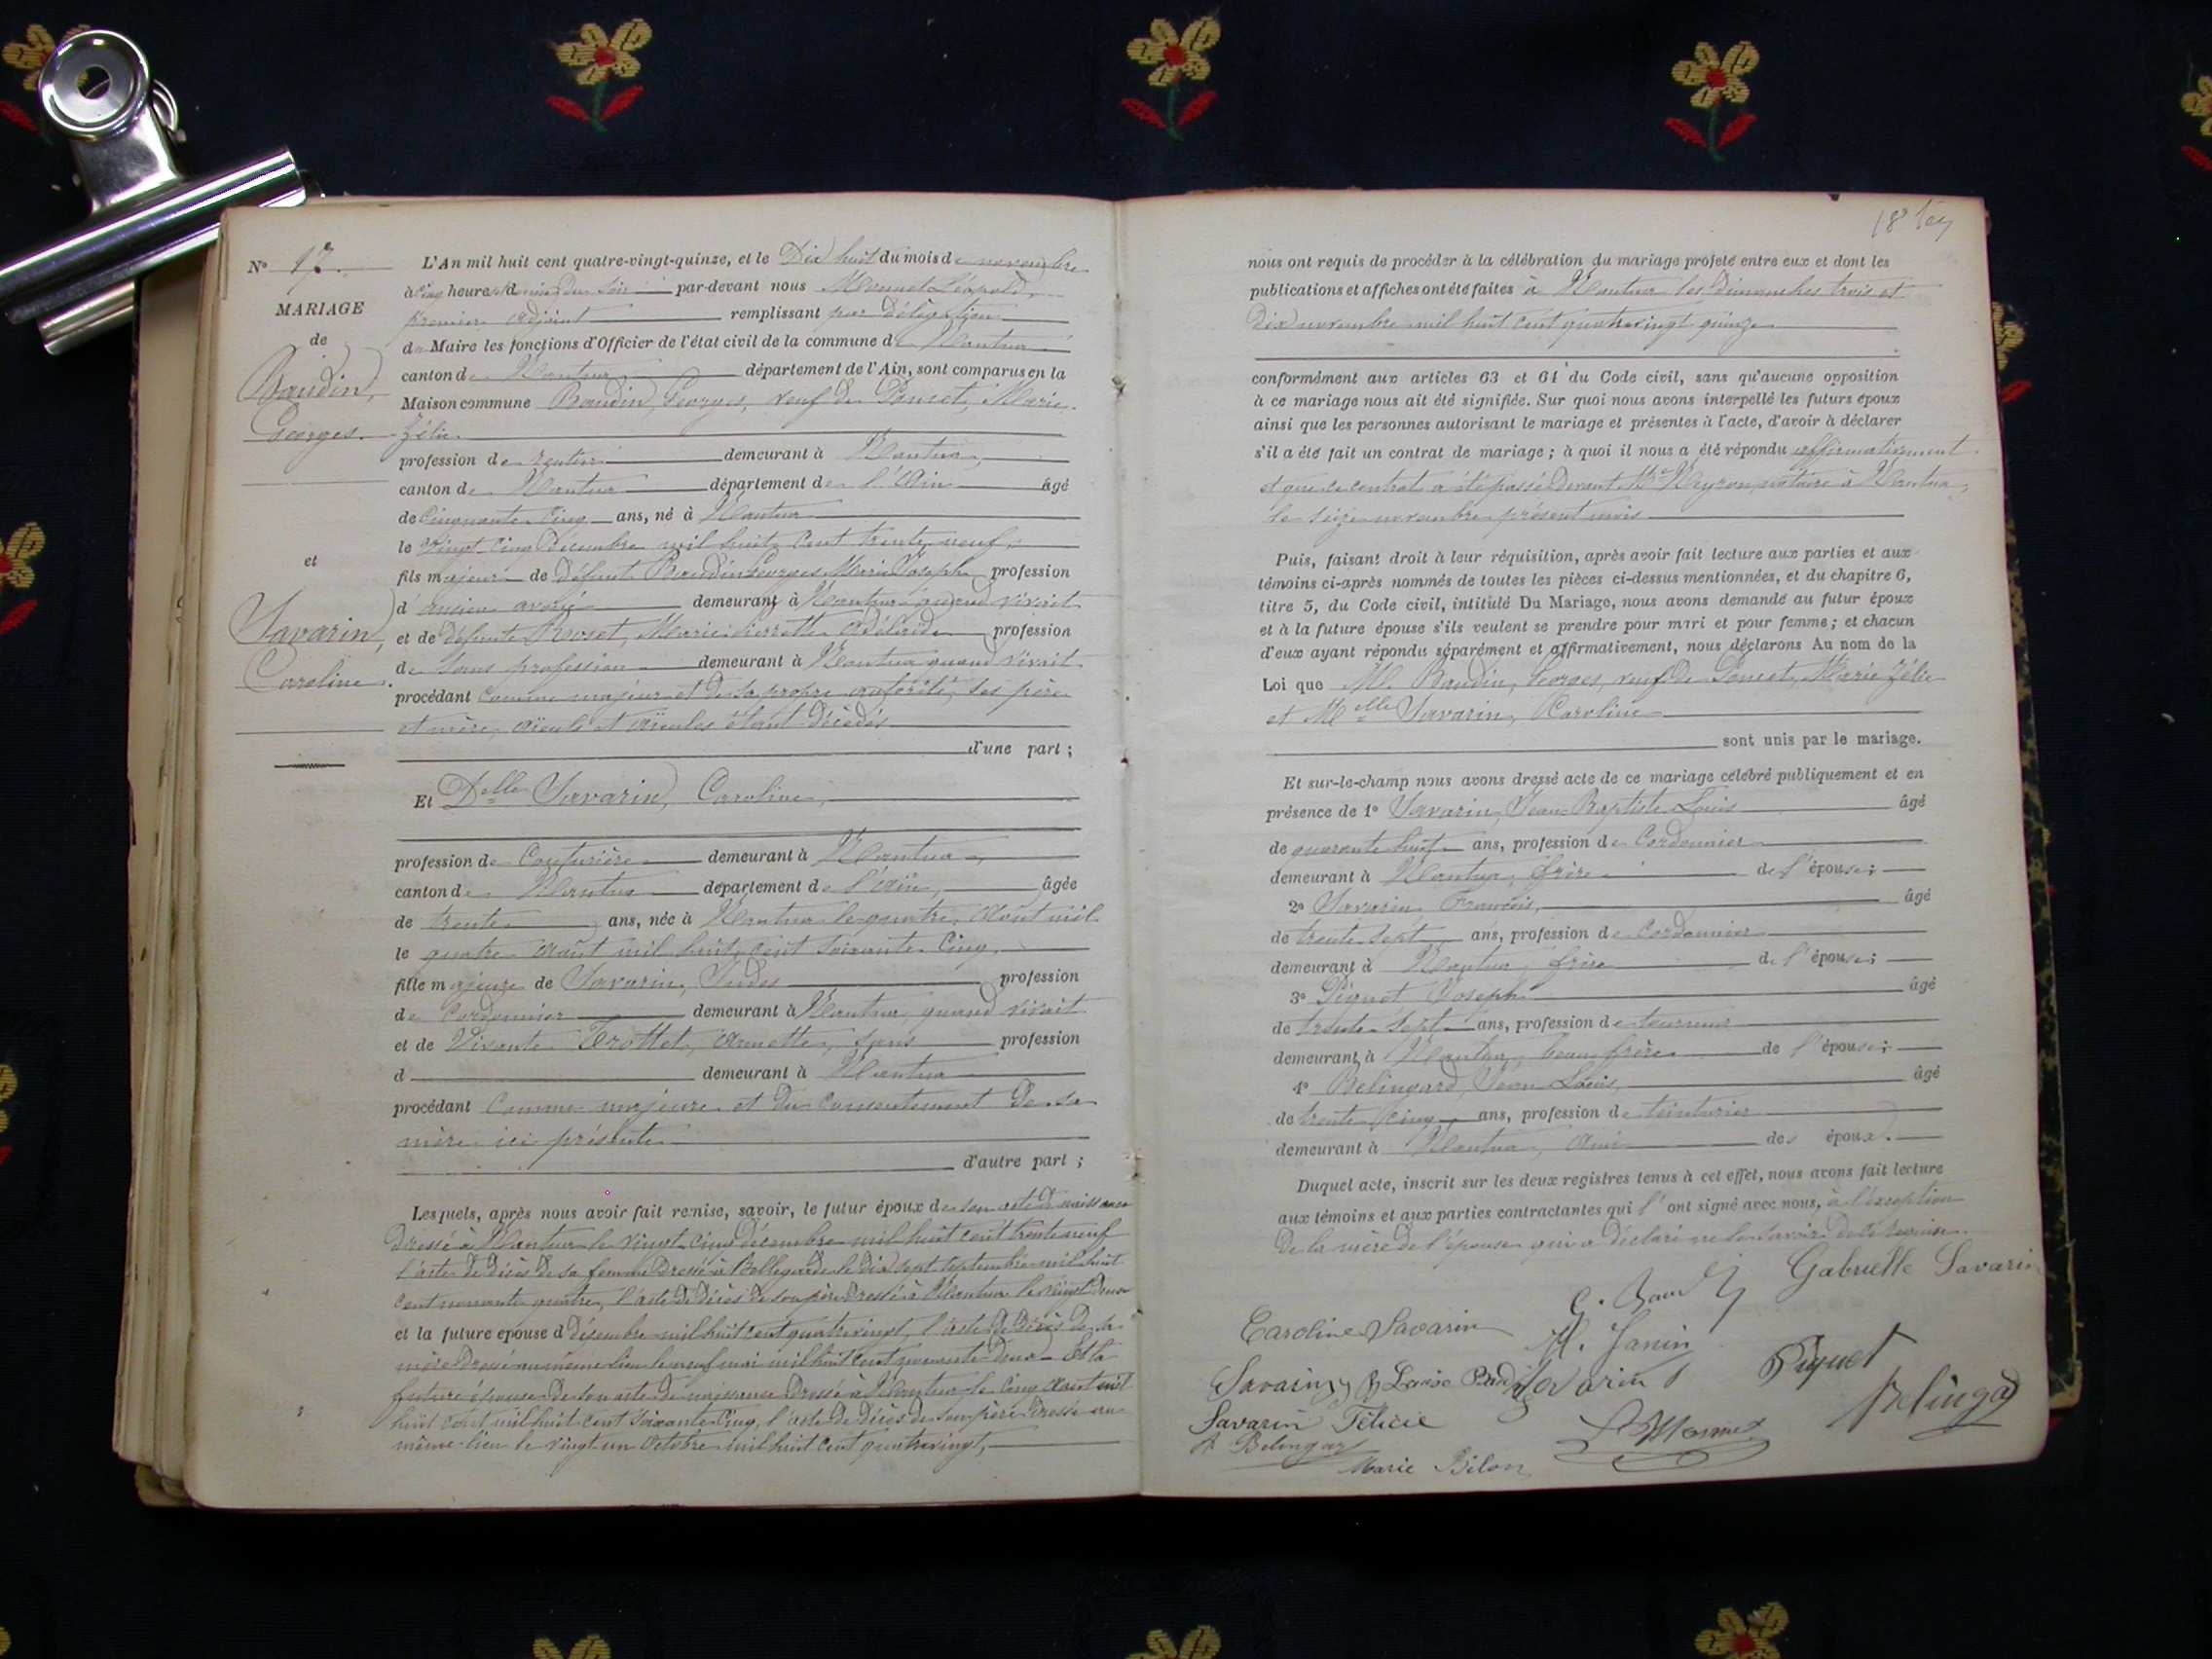 N° 17.
MARIAGE
de
Baudin,
Georges.
et
Savarin,
Caroline.
L'An mil huit cent quatre-vingt-quinze, et le Dix huit du mois de novembre
à cinq heures du soir par-devant nous Léopold,
premier adjoint remplissant par délégation
du Maire les fonctions d'Officier de l'état civil de la commune de Nantua
canton de Nantua département de l'Ain, sont comparus en la
Maison commune Baudin, Georges, veuf de Poncet, Marie
Zélie
profession de rentier demeurant à Nantua,
canton de Nantua département de l'Ain âgé
de cinquante cinq ans, né à Nantua
le vingt cinq décembre mil huit cent trente neuf,
fils majeur de défunt Baudin Georges Marie Joseph profession
d'ancien avoué demeurant à Nantua quand vivait
et de défunte Marie Pierrette Adélaïde profession
de sans profession demeurant à Nantua quand vivait
procédant comme majeur et de sa propre autorité, ses père
et mère, aïeuls et aïeules étant décédés
d'une part ;
Et Delle Savarin, Caroline,
profession de Couturière demeurant à Nantua,
canton de Nantua département de l'Ain, âgée
de trente ans, née à Nantua le quatre Août mil
le quatre Août mil huit cent soixante cinq,
fille majeure de Savarin, profession
de Cordonnier demeurant à Nantua, quand vivait
et de vivante Trottet, Annette, sans profession
d demeurant à Nantua
procédant comme majeure et du consentement de sa
mère ici présente
d'autre part ;
Lesquels, après nous avoir fait remise, savoir, le futur époux de son acte de naissance
dressé à Nantua le vingt cinq décembre mil huit cent trente neuf
l'acte de décès de sa femme dressé à Bellegarde le dix sept septembre mil huit
cent nonante quatre, l'acte de décès de son père dressé à Nantua le vingt deux
et la future épouse d décembre mil huit cent quatre vingt, l'acte de décès de sa
mère dressé au même lieu le neuf mai mil huit cent nonante deux - Et la
future épouse de son acte de naissance dressé à Nantua le cinq Août mil
huit cent mil huit cent soixante cinq, l'acte de décès de son père dressé au
même lieu le vingt un Octobre mil huit cent quatre vingt,
nous ont requis de procéder à la célébration du mariage projeté entre eux et dont les
publications et affiches ont été faites à Nantua les dimanches trois et
dix novembre mil huit cent quatre vingt quinze
conformément aux articles 63 et 64 du Code civil, sans qu'aucune opposition
à ce mariage nous ait été signifiée. Sur quoi nous avons interpellé les futurs époux
ainsi que les personnes autorisant le mariage et présentes à l'acte, d'avoir à déclarer
s'il a été fait un contrat de mariage ; à quoi il nous a été répondu affirmativement
et que ce contrat a été passé devant Me notaire à Nantua,
le seize novembre présent mois
Puis, faisant droit à leur réquisition, après avoir fait lecture aux parties et aux
témoins ci-après nommés de toutes les pièces ci-dessus mentionnées, et du chapitre 6,
titre 5, du Code civil, intitulé Du Mariage, nous avons demandé au futur époux
et à la future épouse s'ils veulent se prendre pour mari et pour femme ; et chacun
d'eux ayant répondu séparément et affirmativement, nous déclarons Au nom de la
Loi que M. Baudin, Georges, veuf de Poncet, Marie Zélie
et Melle Savarin, Caroline
sont unis par le mariage.
Et sur-le-champ nous avons dressé acte de ce mariage célébré publiquement et en
présence de 1° Savarin, Jean Baptiste Louis âgé
de quarante huit ans, profession de Cordonnier
demeurant à Nantua, frère de l'épouse ;
2° Savarin François, âgé
de trente sept ans, profession de Cordonnier
demeurant à Nantua, frère de l'épouse ;
3° Piquet Joseph âgé
de trente sept ans, profession de tourneur
demeurant à Nantua, beau frère de l'épouse ;
4° Belingard, Jean Louis, âgé
de trente cinq ans, profession de teinturier
demeurant à Nantua, ami des époux.
Duquel acte, inscrit sur les deux registres tenus à cet effet, nous avons fait lecture
aux témoins et aux parties contractantes qui l'ont signé avec nous, à l'exception
de la mère de l'épouse qui a déclaré ne le savoir de ce requise.
G. Baudin
Gabrielle Savarin
Caroline Savarin
M. Janin
Savarin
Piquet
Savarin Félicie
Belingard
Marie Bilon